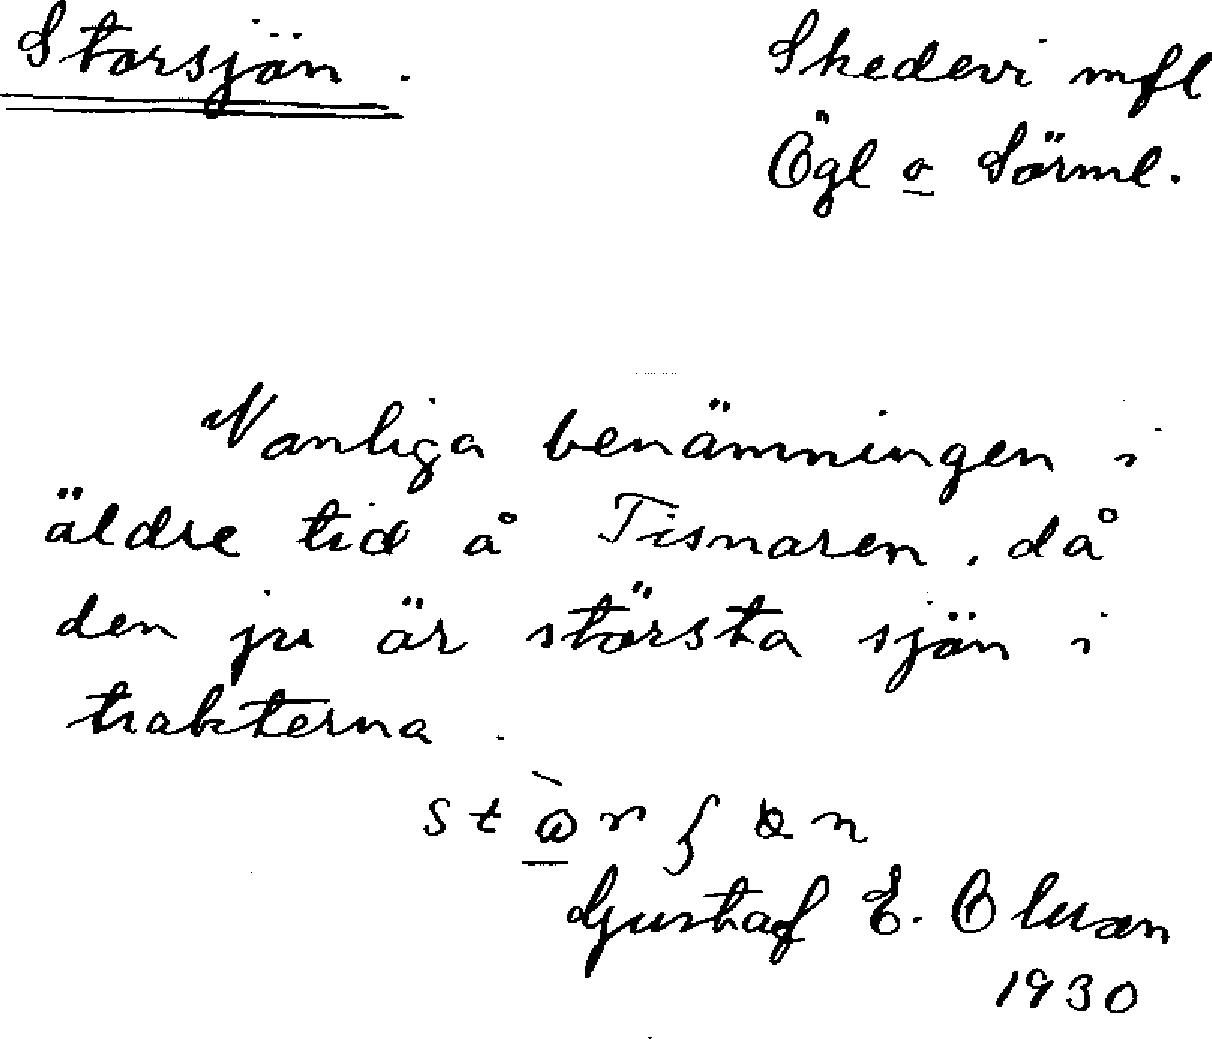 Storsjön.
Skedevi mfl
Ögl o Sörml.
Vanliga benämningen i
äldre tid å Tisnaren, då
den ju är största sjön i
trakterna.
Gustaf E. Olsson
1930